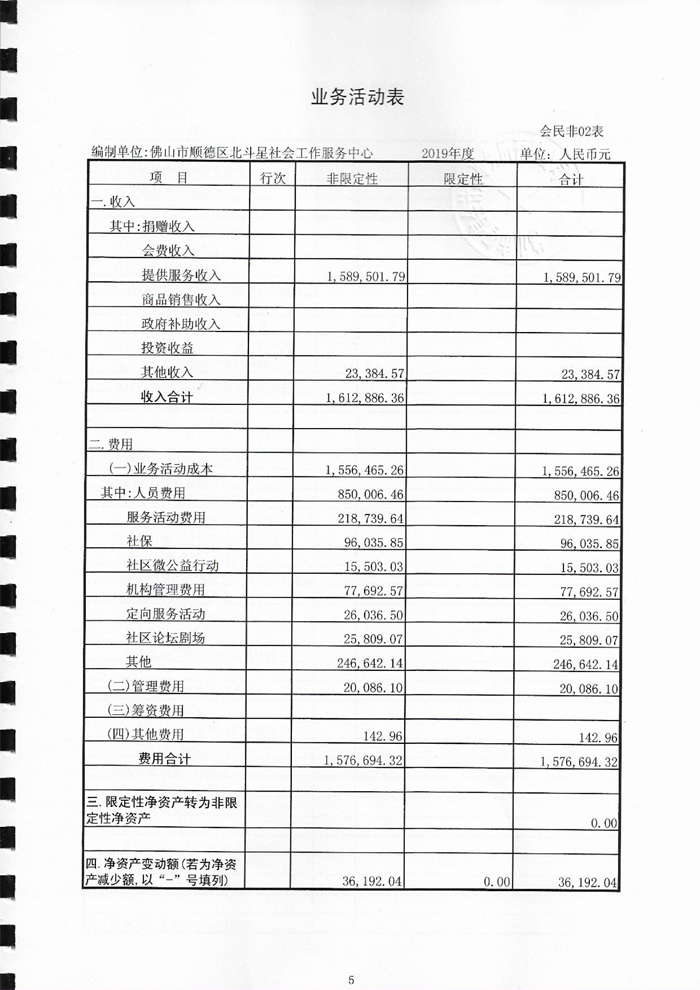 业务活动表
会民非02表
编制单位:佛山市顺德区北斗星社会工作服务中心 2019年度 单位：人民币元
项 目 行次 非限定性 限定性 合计
一.收入
其中:捐赠收入
会费收入
提供服务收入 1,589,501.79 1,589,501.79
商品销售收入
政府补助收入
投资收益
其他收入 23,384.57 23,384.57
收入合计 1,612,886.36 1,612,886.36
二.费用
(一)业务活动成本 1,556,465.26 1,556,465.26
其中:人员费用 850,006.46 850,006.46
服务活动费用 218,739.64 218,739.64
社保 96,035.85 96,035.85
社区微公益行动 15,503.03 15,503.03
机构管理费用 77,692.57 77,692.57
定向服务活动 26,036.50 26,036.50
社区论坛剧场 25,809.07 25,809.07
其他 246,642.14 246,642.14
(二)管理费用 20,086.10 20,086.10
(三)筹资费用
(四)其他费用 142.96 142.96
费用合计 1,576,694.32 1,576,694.32
三.限定性净资产转为非限
定性净资产 0.00
四.净资产变动额(若为净资
产减少额,以“-”号填列) 36,192.04 0.00 36,192.04
5